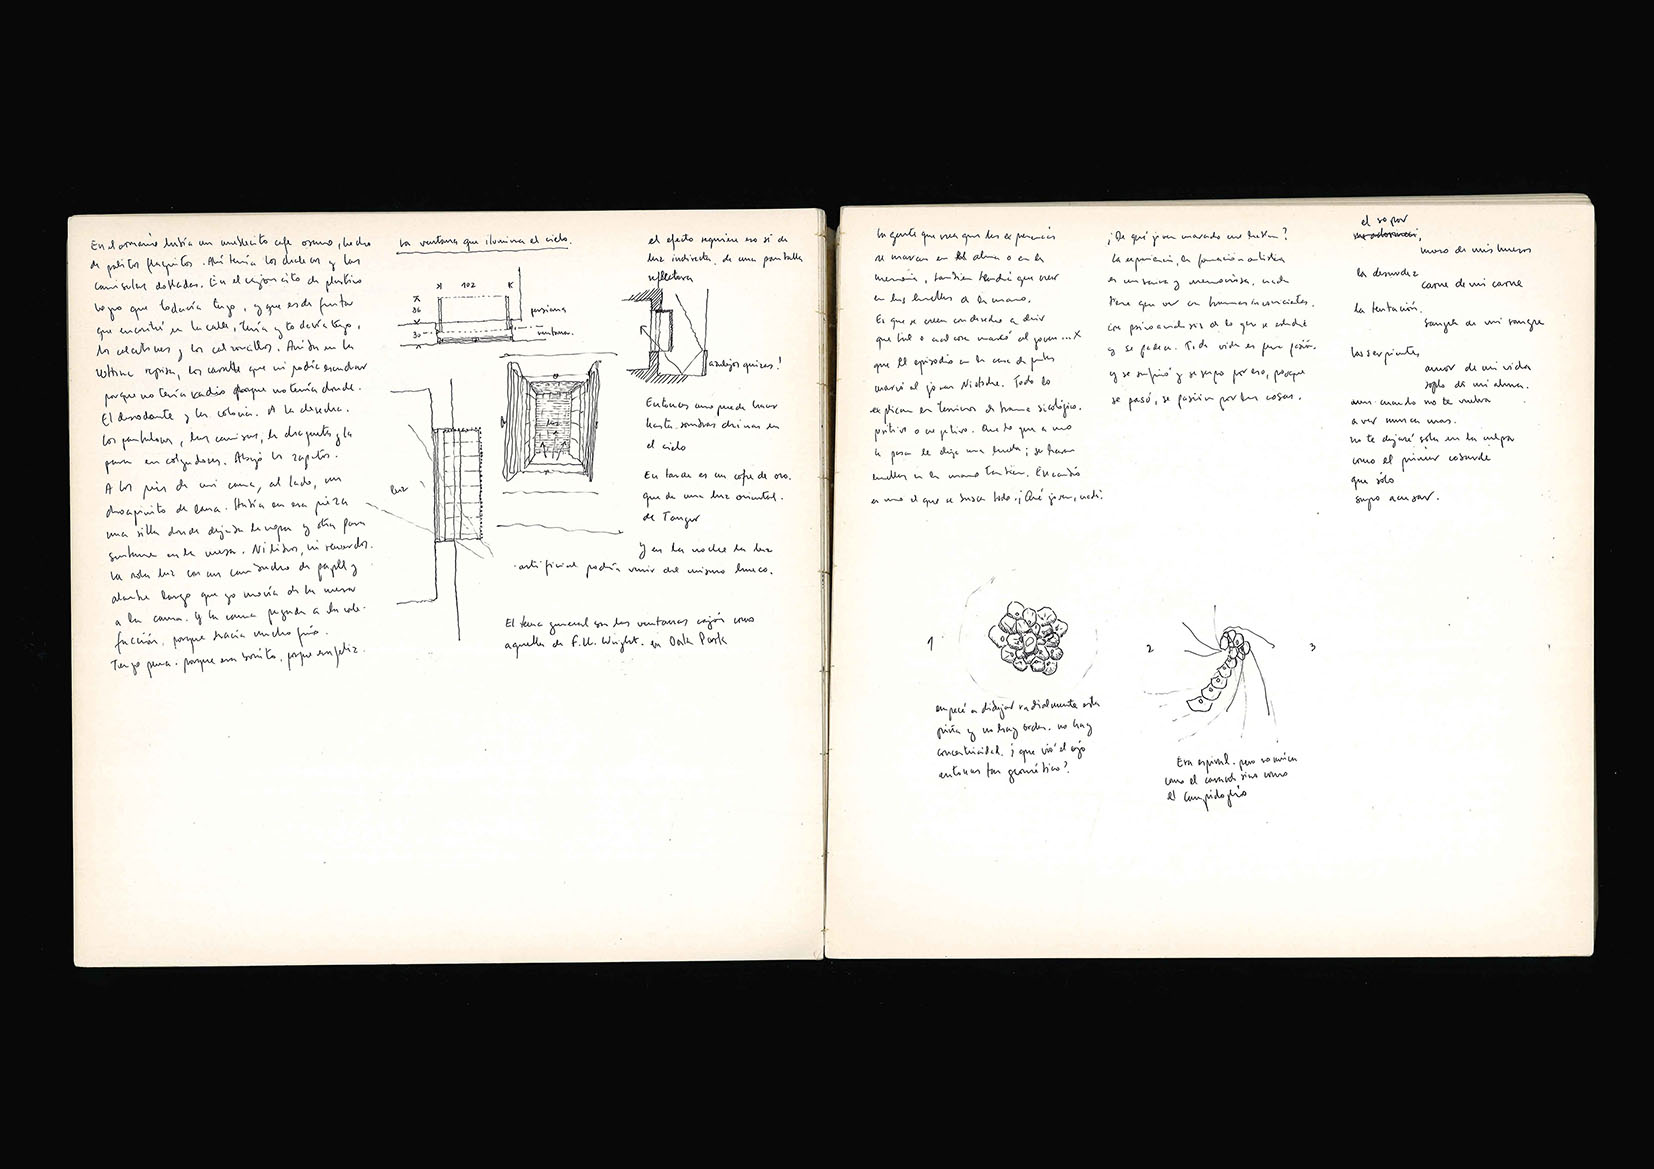 En el armario había un mueblecito café oscuro, hecho
de palitos flaquitos. Ahí tenía los chalecos y las
camisetas dobladas. En el cajoncito de plástico
rojo que todavía tengo, y que es de fruta
que encontré en la calle, tenía y todavía tengo,
los calcetines y los calzoncillos. Arriba en la
última repisa, los cassette que ni podía escuchar
porque no tenía radio porque no tenía donde.
El desodorante y la colonia. A la derecha.
los pantalones, las camisas, la chaqueta y la
parka en colgadores. Abajo los zapatos.
A los pies de mi cama, al lado, un
de lana. Había en esa pieza
una silla donde dejaba la ropa y otra para
sentarme en la mesa. Ni libros, ni recuerdos.
La sola luz con un de papel y
alambre largo que yo movía de la mesa
a la cama. Y la cama pegada a la cale-
facción, porque hacía mucho frío.
Tengo pena. porque era bonito, porque era feliz.
La ventana que ilumina el cielo.
102
86
30
persiana
ventana.
luz
luz
el efecto requiere eso sí de
luz indirecta, de una pantalla
reflectora
azulejos quizás!
Entonces uno puede hacer
hasta sombras chinas en
el cielo
En tarde es un cofre de oro.
que da una luz oriental.
de Tanger
Y en la noche la luz
artificial podría venir del mismo hueco.
El tema general son las ventanas cajón como
aquella de F.Ll. Wright. en Oak Park
La gente que cree que las experiencias
se marcan en el alma o en la
memoria, también tendrá que creer
en las huellas de la mano.
Es que se creen con derecho a decir
que tal o cual cosa marcó al joven... X
que el episodio en la casa de putas
marcó al joven Nietzche. Todo lo
explican en términos de trauma sicológico.
positivo o negativo. Que lo que a uno
le pasa le deja una huella; se hacen
huellas en la mano también. Encandió
es uno el que se busca todo. ¡Qué joven, nada!
¿De qué joven marcado me hablan?
La experiencia, la formación artística
es nada
tiene que ver con traumas inconscientes.
con psicoanálisis de lo que se
y se padece. Toda vida es pura pasión.
y se sufrió y se supo por eso, porque
se pasó, se pasión por las cosas.
el sopor
hueso de mis huesos
la desnudez
carne de mi carne
la tentación.
sangre de mi sangre
las serpientes
amor de mi vida
soplo de mi alma.
aun cuando no te vuelva
a ver nunca mas.
no te dejaré sola en la culpa
como el primer cobarde
que sólo
supo acusar.
1
empecé a dibujar radialmente esta
piña y no hay orden. no hay
concentricidad. ¿que vió el ojo
entonces tan geométrico?
2
Era espiral. pero no única
como el caracol sino como
el Campidoglio
3